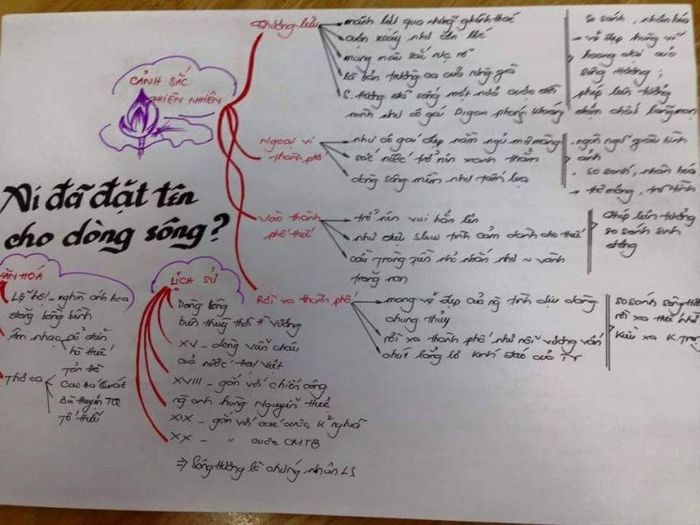 Thượng lưu
mãnh liệt qua những ghềnh thác
cuộn xoáy như cơn lốc
mang màu sắc rực rỡ
là bản trường ca của rừng già
S. Hương đã sống một nửa cuộc đời
mình như cô gái Digan phóng khoáng
so sánh, nhân hóa
→ vẻ đẹp hoang dại của
sông Hương;
phép liên tưởng
đậm chất lãng mạn
CẢNH SẮC
THIÊN NHIÊN
Ngoại vi
thành phố
như cô gái đẹp nằm ngủ mơ màng
sắc nước trở nên xanh thẳm
dòng sông mềm như tấm lụa
ngôn ngữ giàu hình
ảnh
so sánh, nhân hóa
→ thơ mộng, trữ tình
Ai đã đặt tên
cho dòng sông?
Vào thành
phố Huế
trở nên vui hẳn lên
như điệu slow tình cảm dành cho Huế
cầu trắng in nhỏ nhắn như vành
trăng non
phép liên tưởng
so sánh sinh
động
Rời xa thành phố
mang vẻ đẹp của ng tình dịu dàng
chung thủy
rời xa thành phố như nỗi vương vấn
chút lẳng lơ kín đáo của TY
so sánh sông Hương
rời xa Huế như
Kiều xa K.Trọng
VĂN HOÁ
Lễ hội - nghìn ánh hoa
đăng bồng bềnh
Âm nhạc
cổ điển
hò Huế
Thơ ca
Tản Đà
Cao Bá Quát
Bà Huyện TQ
Tố Hữu
LỊCH SỬ
Dòng sông
biên thùy thời Hùng Vương
XV - dòng viễn châu
của nước Đại Việt
XVIII - gắn với chiến công
ng anh hùng Nguyễn Huệ
XIX - gắn với các cuộc k/nghĩa
XX - " cuộc CMT8
⇒ Sông Hương là chứng nhân LS